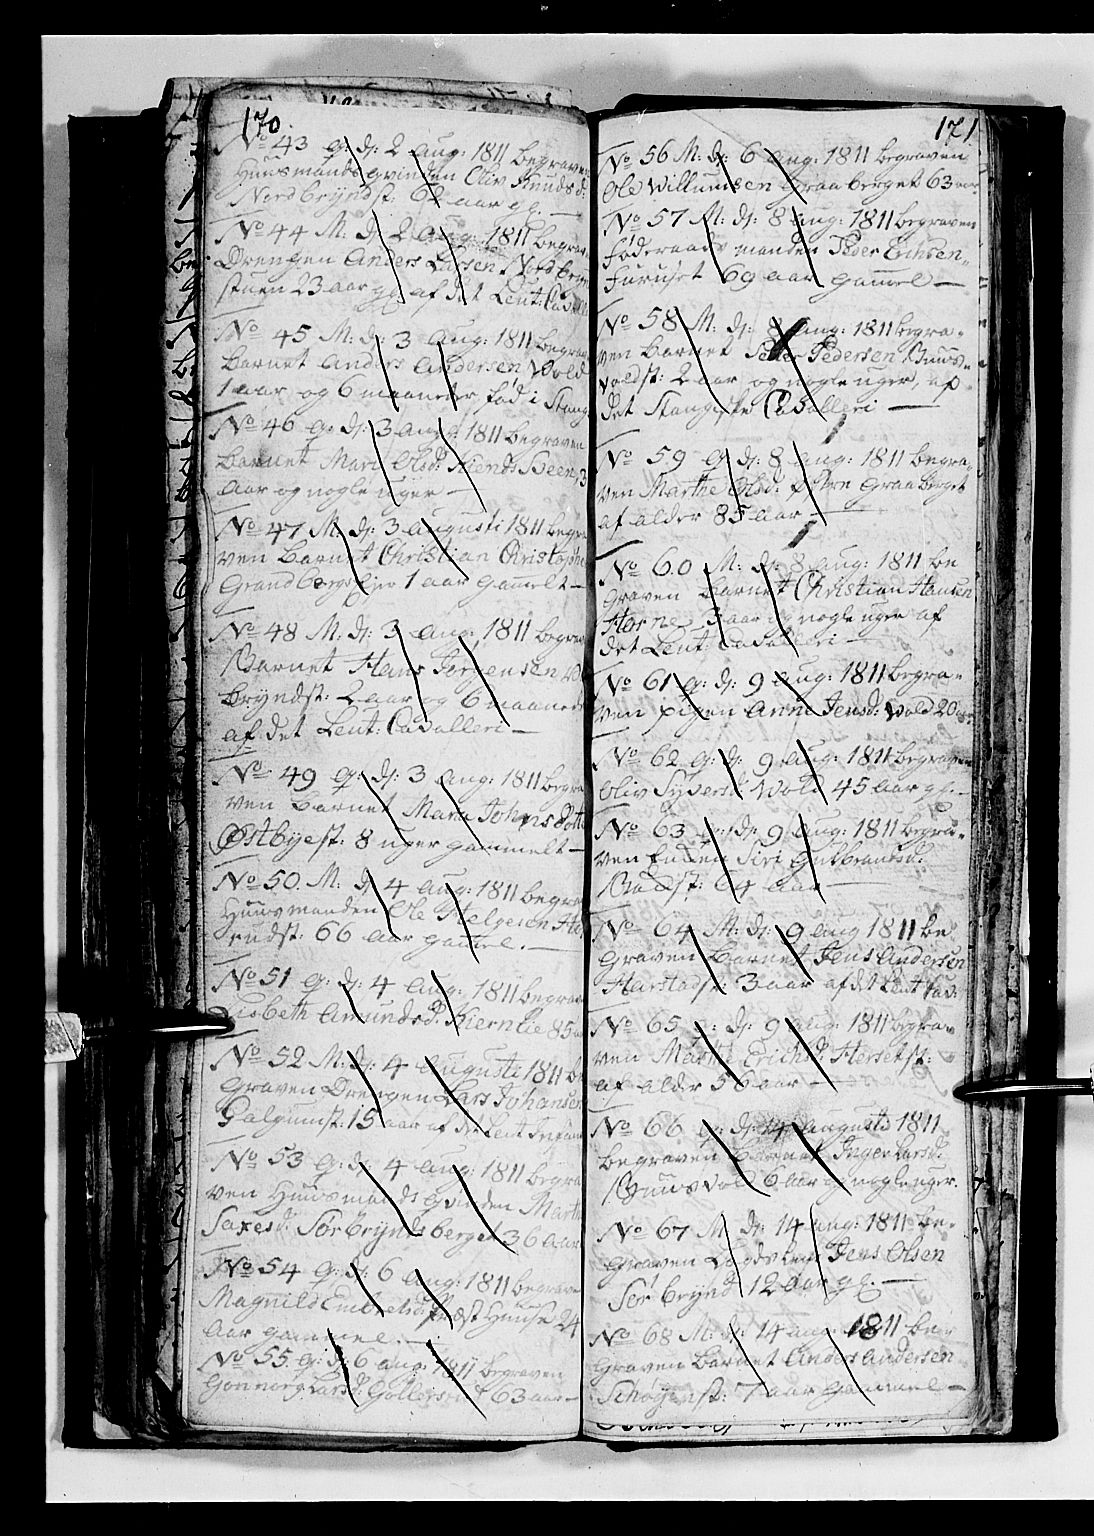 170.
No 43 q: d: 2 aug: 1811 begraven
Huusmands qvinden Oliv Knudsd:
Nordbryndst: 62 aar gl. —
No 44 M: d: 2 aug: 1811 begrav
Drengen Anders Larsen Nordbryn
stuen 23 aar gl. af det Leut: Cavall
No 45 M: d: 3 aug: 1811 begrav
Barnet Anders Andersen Vold
1 aar og 6 maaneder fød i Stang
No 46 q: d: 3 aug: 1811 begraven
Barnet Mari Olsd: 3
aar og nogle uger —
No 47 M: d: 3 augusti 1811 begra
ven Barnet Christian Christophe
Grandbergs 1 aar gammelt —
No 48 M: d: 3 aug: 1811 begrav
Barnet Hans Jørgensen
Bryndst: 2 aar og 6 maaned
af det Leut: Cavalleri —
No 49 q: d: 3 aug: 1811 begra
ven Barnet Mari Johnsdotte
Østbyest: 8 uger gammelt —
No 50. M: d: 4 aug: 1811 begrav
Huusmanden Ole Helgesen
rudst: 66 aar gammel. —
No 51 q: d: 4 aug: 1811 begrav
Lisbeth Amundsd: Kiernlie 85
No 52 M: d: 4 augusti 1811 be
graven Drengen Lars Johansen
Galgumst: 15 aar af det Leut Infan
No 53 q: d: 4 aug: 1811 begra
ven Huusmands qvinden Marth
Saxesd: Sørbryndsberget 36 aar
No 54 q: d: 6 aug: 1811 begrave
Magnild Embretsd: Huuse 24
aar gammel. —
No 55. q: d: 6 aug: 1811 begraven
Gonnorg Larsd: 63 aar —
171
No 56 M: d: 6 aug: 1811 begraven
Ole Willumsen Graaberget 63 aar
No 57 M: d: 8 aug: 1811 begraven
føderaads manden Peder Erichsen
Furuset 69 aar gammel —
No 58 M: d: 8 aug: 1811 begra-
ven Barnet Peder Pedersen Huus-
voldst: 2 aar og nogle uger, af
det Stangiske Cavalleri —
No 59 q: d: 8 aug: 1811 begra
ven Marthe Olsd: Graaberget
af alder 85 aar —
No 60 M: d: 8 aug: 1811 be
graven Barnet Christian Hansen
Horne 3 aar og nogle uger af
det Leut: Cavalleri —
No 61 q: d: 9 aug: 1811 begra-
ven pigen Anne Jensd: Vold 20 aar
No 62 q: d: 9 aug: 1811 begraven
Oliv Syversd: Vold 45 aar gl. —
No 63 q: d: 9 aug: 1811 begra-
ven Enken Siri Gulbrandsd:
64 aar —
No 64 M: d: 9 aug 1811 be
graven Barnet Jens Andersen
Harstadst: 3 aar af det Leut Cav:
No 65 q: d: 9 aug: 1811 begra-
ven Marthe Erichsd: Hersetst:
af alder 56 aar —
No 66 q: d: 14 augusti 1811
begraven Barnet Inger Larsd:
Huusvold 6 aar og nogle uger.
No 67 M: d: 14 aug: 1811 be-
graven Jens Olsen
Sør Brynd 12 aar gl. —
No 68 M: d: 14 aug: 1811 be-
graven Barnet Anders Andersen
Schøyenst: 7 aar gammel —